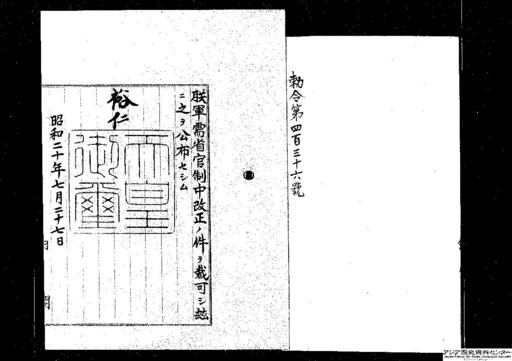 勅令第四百三十六號
朕軍需省官制中改正ノ件ヲ裁可シ玆
ニ之ヲ公布セシム
裕仁
天皇御璽
昭和二十年七月二十七日
アジア歴史資料センター